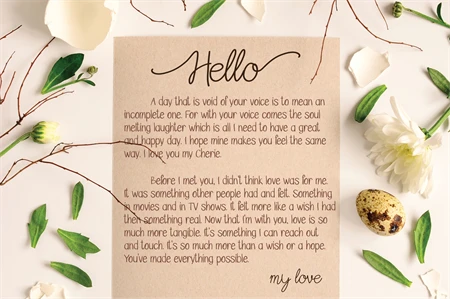 Hello
A day that is void of your voice is to mean an
incomplete one. For with your voice comes the soul
melting laughter which is all I need to have a great
and happy day. I hope mine makes you feel the same
way. I love you my Cherie.
Before I met you, I didn't think love was for me.
It was something other people had and felt. Something
in movies and in TV shows. It felt more like a wish I had
then something real. Now that I'm with you, love is so
much more tangible. It's something I can reach out
and touch. It's so much more than a wish or a hope.
You've made everything possible.
my love